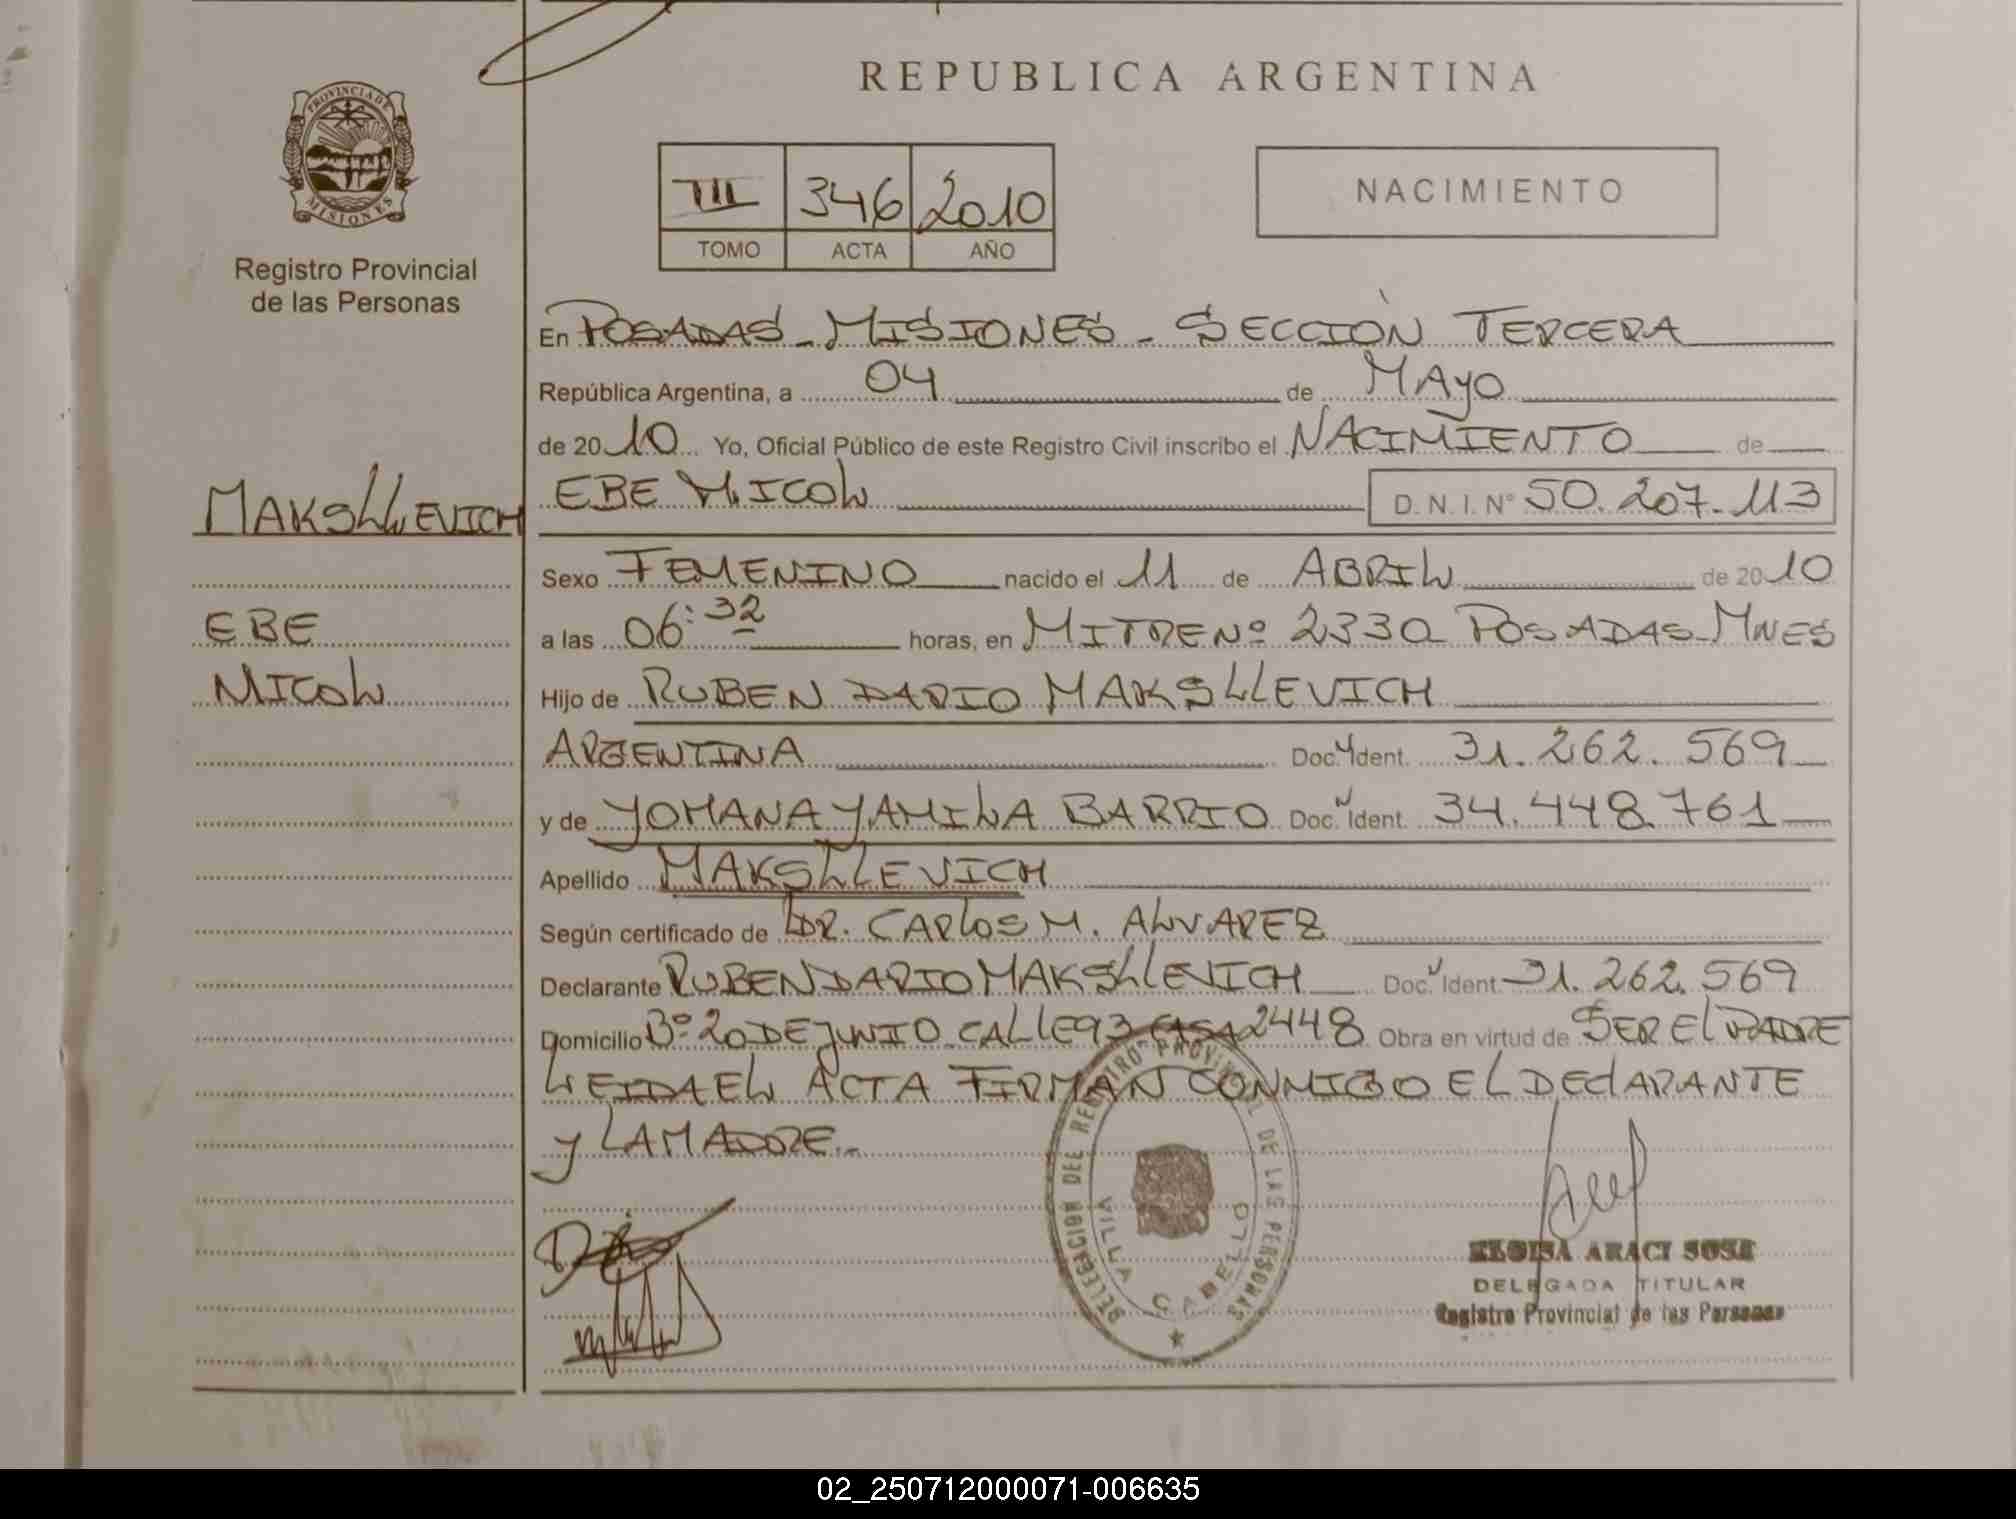 REPUBLICA ARGENTINA
PROVINCIA DE
MISIONES
Registro Provincial
de las Personas
III 346 2010
TOMO ACTA AÑO
NACIMIENTO
En POSADAS - MISIONES - SECCIÓN TERCERA
República Argentina, a 04 de MAYO
de 2010 Yo, Oficial Público de este Registro Civil inscribo el NACIMIENTO de
EBE MICOL D. N. I. Nº 50.207.113
MAKSLLEVICH
EBE
MICOL
Sexo FEMENINO nacido el 11 de ABRIL de 2010
a las 06:32 horas, en MITRE Nº 2330 POSADAS-MNES
Hijo de RUBEN DARIO MAKSLLEVICH
ARGENTINA Doc. Ident. 31.262.569
y de YOHANA YAMILA BARRIO Doc. Ident. 34.448.761
Apellido MAKSLLEVICH
Según certificado de DR. CARLOS M. ALVAREZ
Declarante RUBEN DARIO MAKSLLEVICH Doc. Ident. 31.262.569
Domicilio Bº 20 DE JUNIO CALLE 93 CASA 2448 Obra en virtud de SER EL PADRE
LEIDA EL ACTA FIRMAN CONMIGO EL DECLARANTE
Y LA MADRE.-
DELEGACION DEL REGISTRO PROVINCIAL DE LAS PERSONAS
VILLA CABELLO
ELOISA ARACI SOSA
DELEGADA TITULAR
Registro Provincial de las Personas
02_250712000071-006635